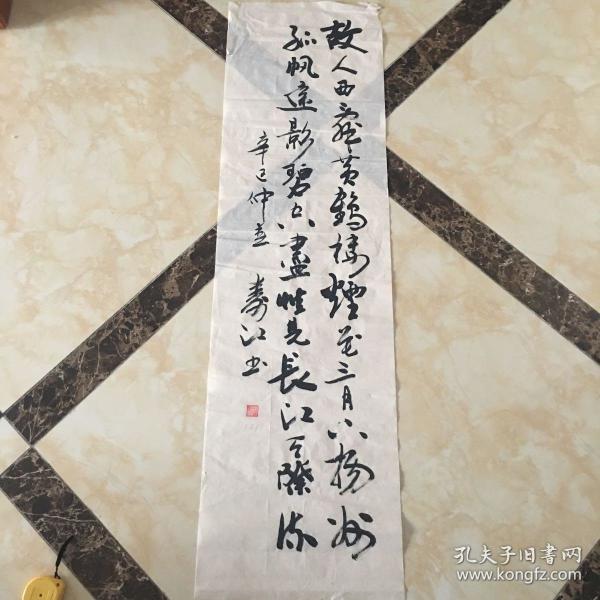 故人西辞黄鹤楼烟花三月下扬州
孤帆远影碧空尽惟见长江天际流
辛巳仲夏
寿江书
孔夫子旧书网
www.kongfz.com